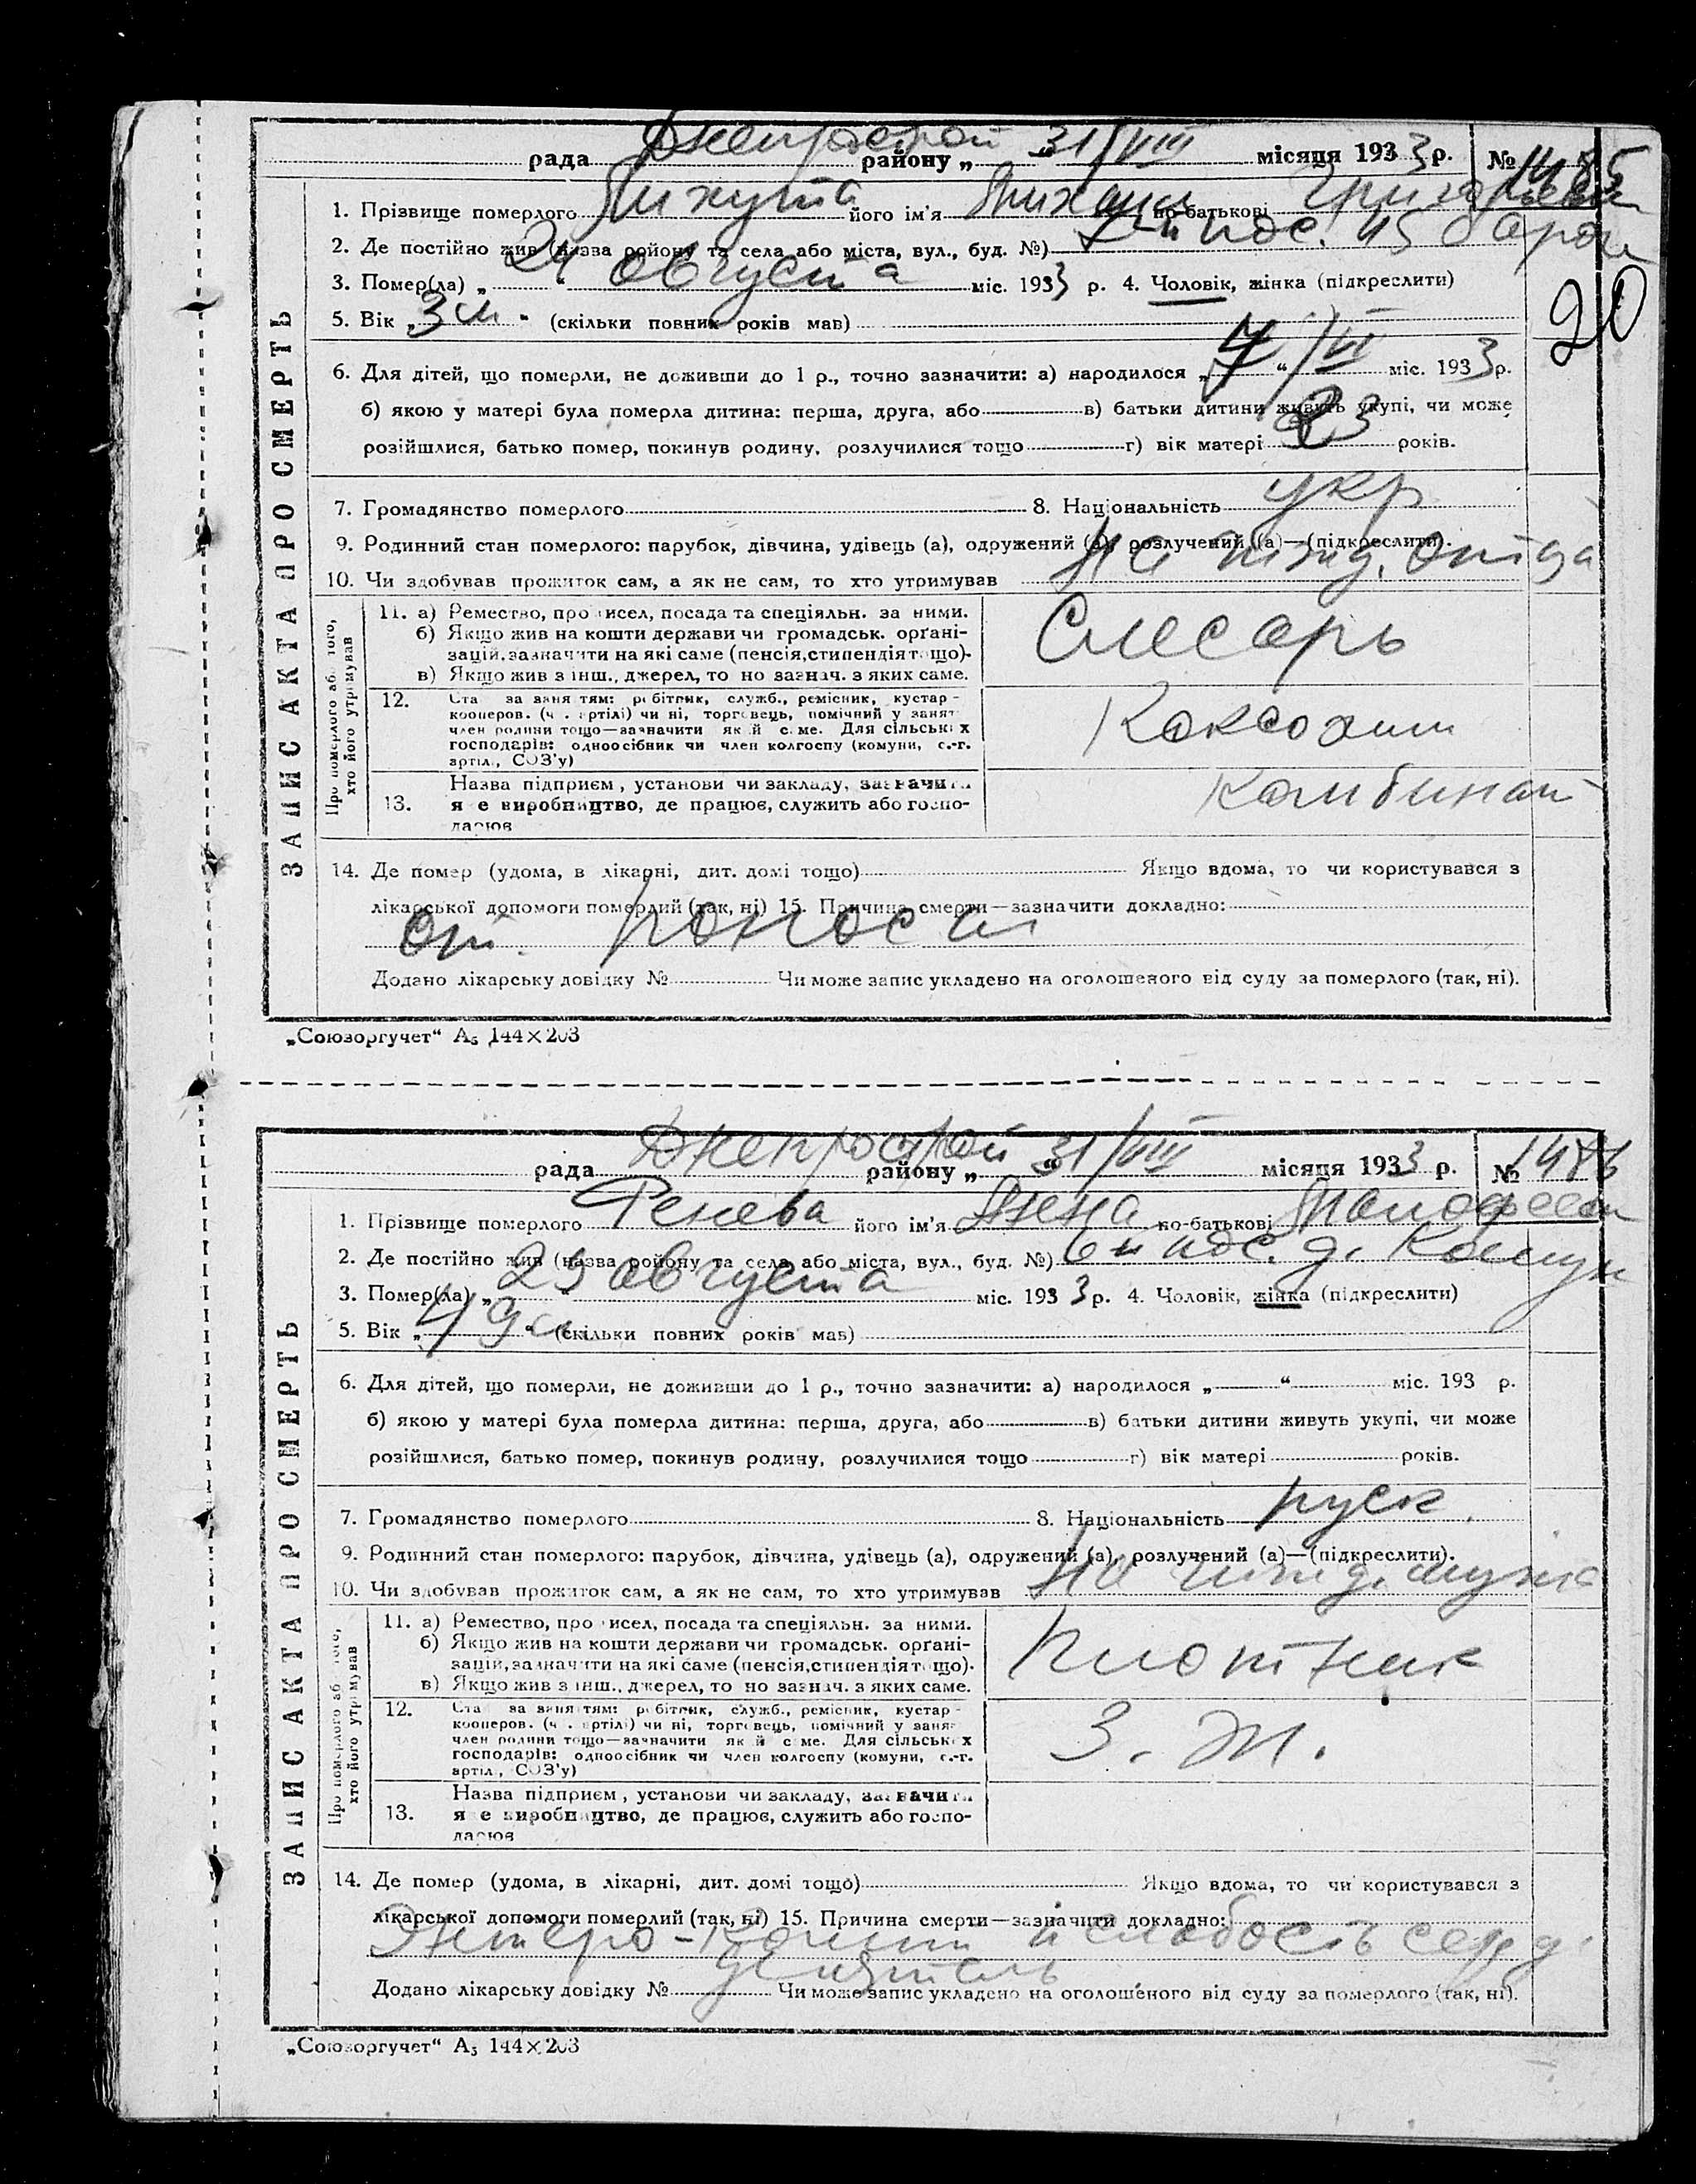 рада Днепрострой району „ 31/VIII місяця 1933 р. № 1485
1. Прізвище померлого його ім'я Михаил по-батькові Григорьевич
2. Де постійно жив (назва району та села або міста, вул., буд. №) пос. 45 барак
3. Помер(ла) „ августа міс. 1933 р. 4. Чоловік, жінка (підкреслити)
5. Вік „3 м“ (скільки повних років мав)
20
6. Для дітей, що померли, не доживши до 1 р., точно зазначити: а) народилося „7“/VI міс. 1933 р.
б) якою у матері була померла дитина: перша, друга, або в) батьки дитини живуть укупі, чи може
розійшлися, батько помер, покинув родину, розлучилися тощо г) вік матері 23 років.
7. Громадянство померлого 8. Національність укр
9. Родинний стан померлого: парубок, дівчина, удівець (а), одружений (а), розлучений (а)—(підкреслити).
10. Чи здобував прожиток сам, а як не сам, то хто утримував На ижд. отца
ЗАПИС АКТА ПРО СМЕРТЬ
Про померлого або того, хто його утримував
11. а) Ремество, промисел, посада та спеціяльн. за ними.
б) Якщо жив на кошти держави чи громадськ. орґані-
зацій, зазначити на які саме (пенсія, стипендія тощо).
в) Якщо жив з інш., джерел, то но зазнач. з яких саме.
Слесарь
12. Ста за заняттям: робітник, служб., ремісник, кустар -
кооперов. (ч . артілі) чи ні, торговець, помічний у занят
член родини тощо—зазначити який саме. Для сільських
господарів: одноосібник чи член колгоспу (комуни, с.-г.
артіл., СОЗ'у)
Коксохим
13. Назва підприєм , установи чи закладу, зазначити
яке виробництво, де працює, служить або госпо-
дарює
Комбинат
14. Де помер (удома, в лікарні, дит. домі тощо) Якщо вдома, то чи користувався з
лікарської допомоги померлий (так, ні) 15. Причина смерти—зазначити докладно:
От поноса
Додано лікарську довідку № Чи може запис укладено на оголошеного від суду за померлого (так, ні).
„Союзоргучет“ А5 144×203
рада Днепрострой району „ 31/VIII місяця 1933 р. № 1486
1. Прізвище померлого його ім'я по-батькові
2. Де постійно жив (назва району та села або міста, вул., буд. №) 6 й пос. д. Комун
3. Помер(ла) „ августа міс. 1933 р. 4. Чоловік, жінка (підкреслити)
5. Вік „ “ (скільки повних років мав)
6. Для дітей, що померли, не доживши до 1 р., точно зазначити: а) народилося „ “ міс. 193 р.
б) якою у матері була померла дитина: перша, друга, або в) батьки дитини живуть укупі, чи може
розійшлися, батько помер, покинув родину, розлучилися тощо г) вік матері років.
7. Громадянство померлого 8. Національність руск.
9. Родинний стан померлого: парубок, дівчина, удівець (а), одружений (а), розлучений (а)—(підкреслити).
10. Чи здобував прожиток сам, а як не сам, то хто утримував На ижд. мужа
ЗАПИС АКТА ПРО СМЕРТЬ
Про померлого або того, хто його утримував
11. а) Ремество, промисел, посада та спеціяльн. за ними.
б) Якщо жив на кошти держави чи громадськ. орґані-
зацій, зазначити на які саме (пенсія, стипендія тощо).
в) Якщо жив з інш., джерел, то но зазнач. з яких саме.
Плотник
12. Ста за заняттям: робітник, служб., ремісник, кустар -
кооперов. (ч . артілі) чи ні, торговець, помічний у занят
член родини тощо—зазначити який саме. Для сільських
господарів: одноосібник чи член колгоспу (комуни, с.-г.
артіл., СОЗ'у)
З. Ж.
13. Назва підприєм , установи чи закладу, зазначити
яке виробництво, де працює, служить або госпо-
дарює
14. Де помер (удома, в лікарні, дит. домі тощо) Якщо вдома, то чи користувався з
лікарської допомоги померлий (так, ні) 15. Причина смерти—зазначити докладно:
Энтеро-колит и слабость серд.
деятель
Додано лікарську довідку № Чи може запис укладено на оголошеного від суду за померлого (так, ні).
„Союзоргучет“ А5 144×203